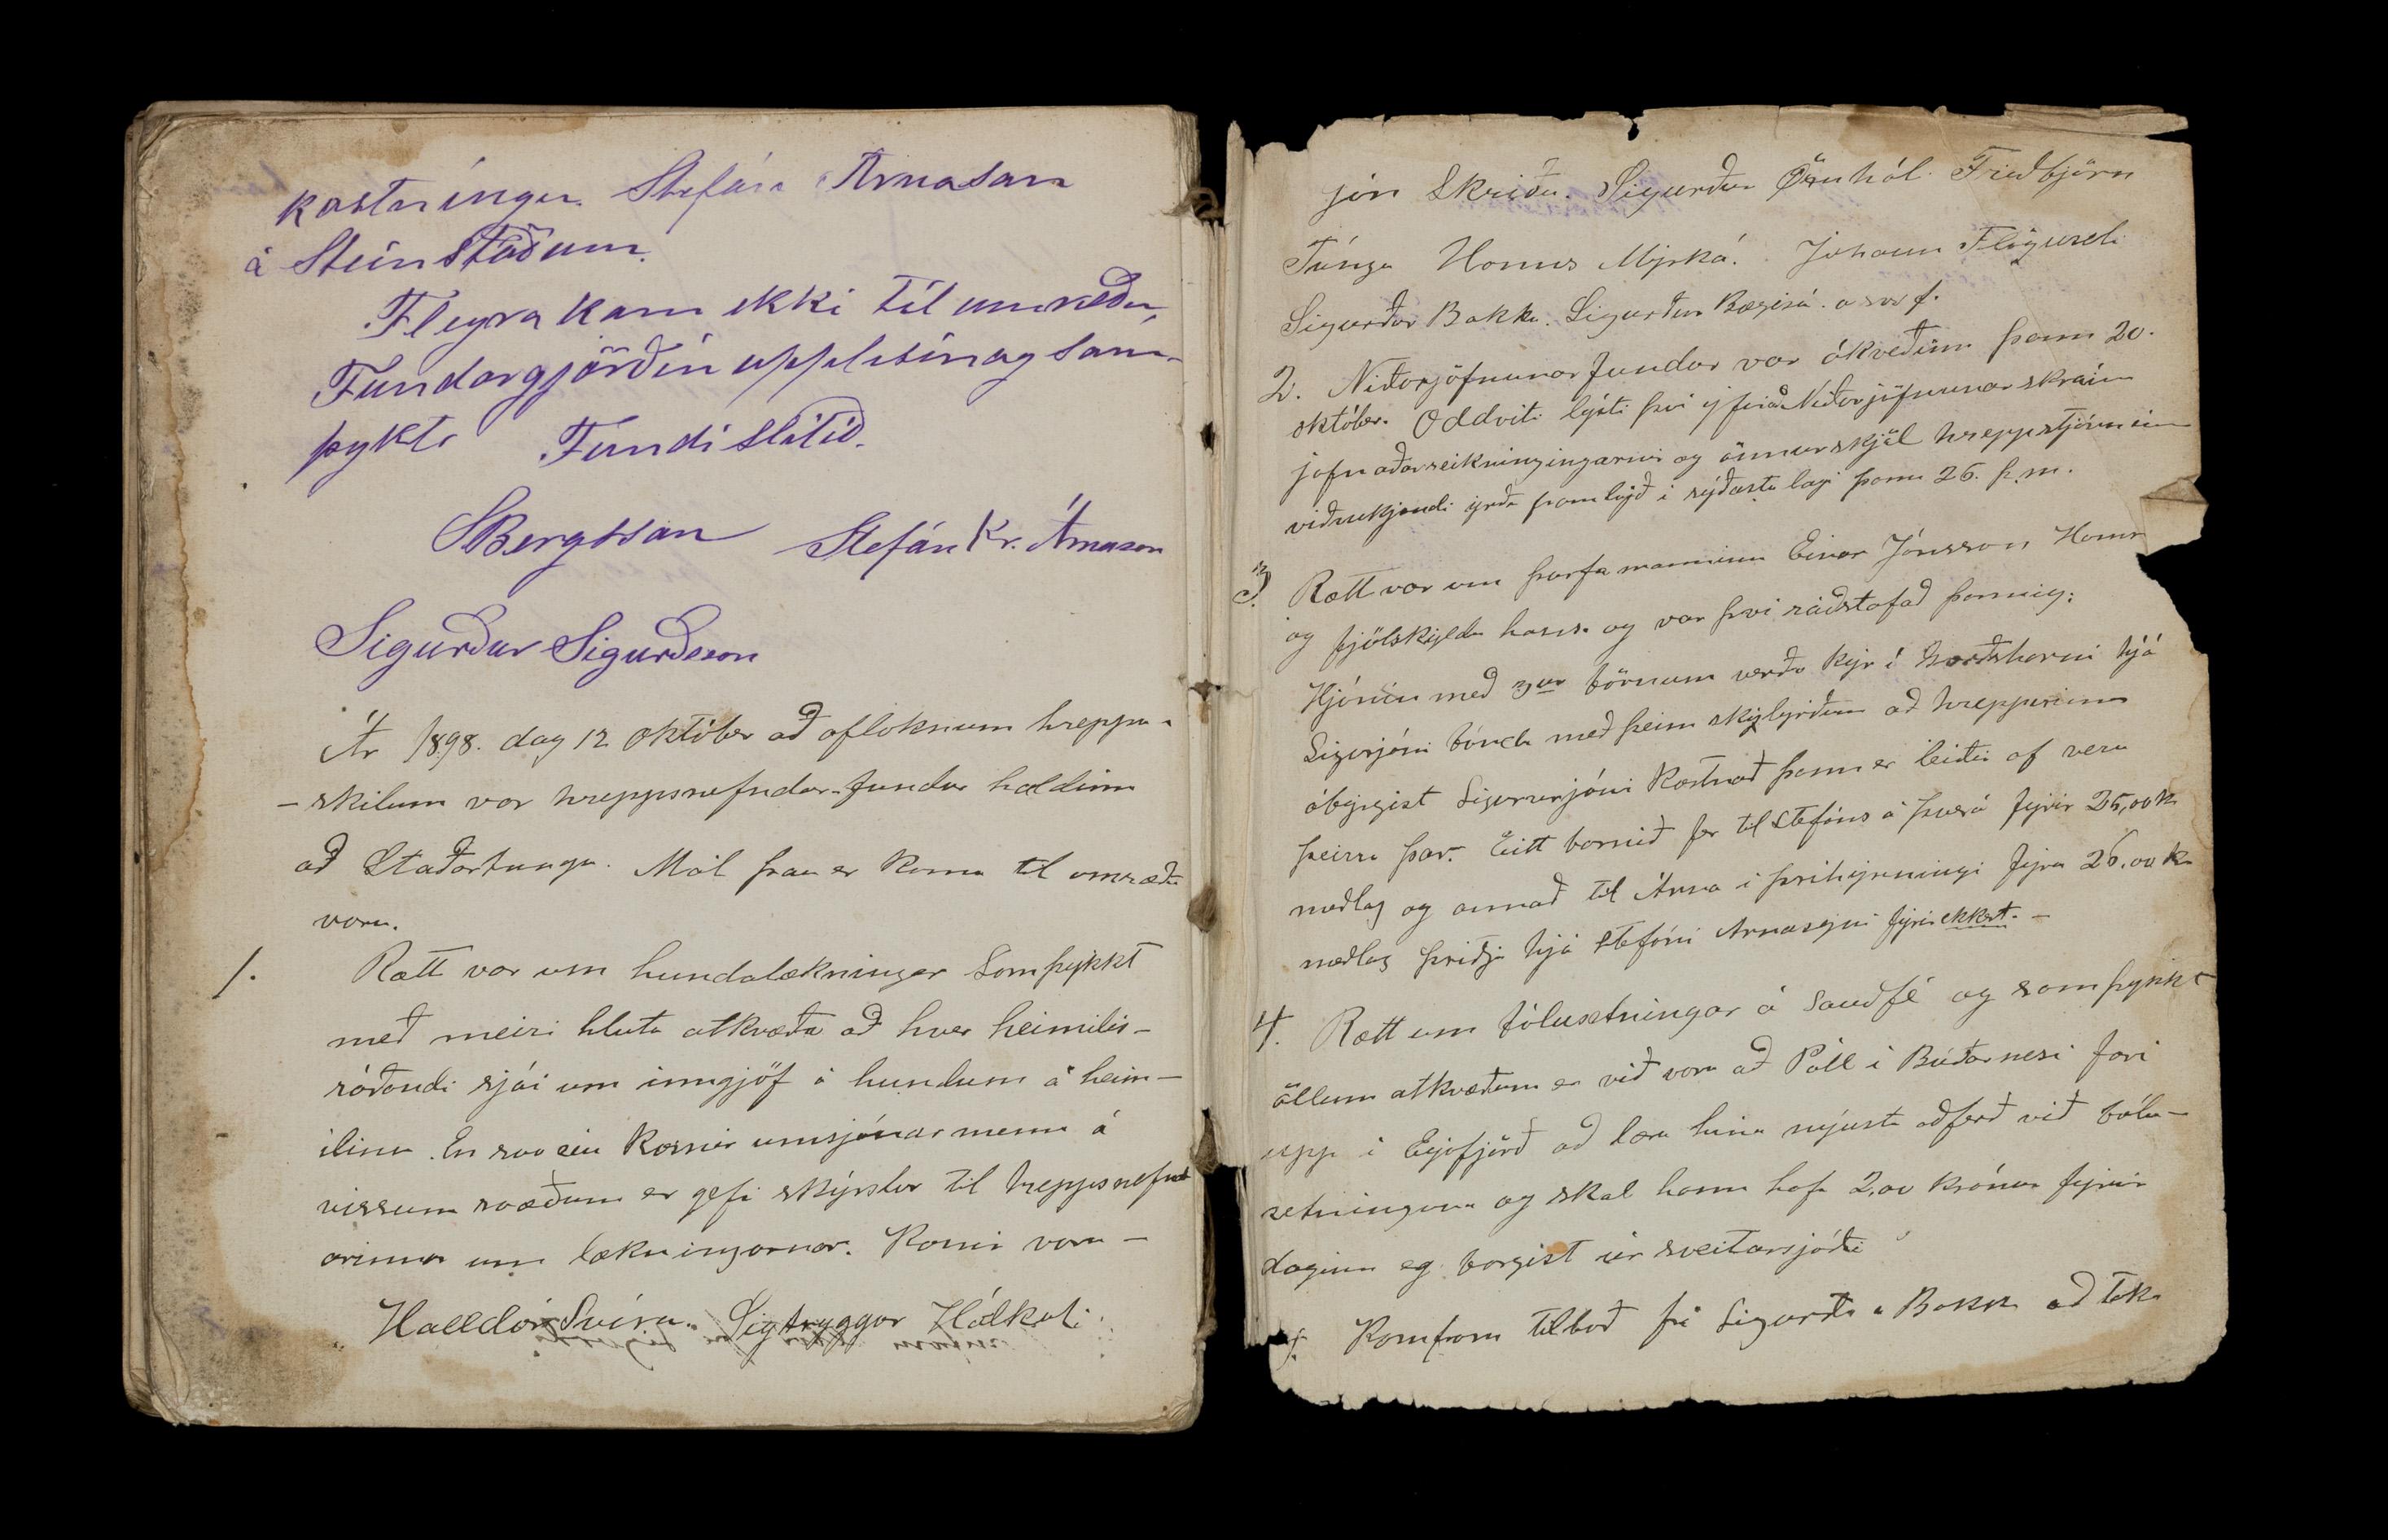 kostníngu. Stefán Árnason
á Steinstöðum.
Fleyra kom ekki til umræðu,
Fundargjörðin upplesin og sam-
þykt. Fundi slitið.
SBergsson Stefán Kr. Árnason
Sigurður Sigurðsson
Ár 1898. dag 12 Október að afloknum hreppa-
-skilum var hreppsnefndar-fundur haldinn
að Staðartungu. Mál þau er komu til umræðu
voru.
1. Rætt var um hundalækningar Samþykkt
með meiri hluta atkvæða að hver heimilis-
ráðandi sjái um inngjöf á hundum á heim-
ilinu. En svo séu kosnir umsjónarmenn á
vissum svæðum er gefi skýrslur til hreppsnefnd
arinnar um lækningarnar. Kosnir voru -
Halldór Svíra. Sigtryggur Hálkoti.
jón Skriðu. Sigurður Öxnhól. Friðbjörn
Túnga Hannes Myrká. Jóhann Flöguseli
Sigurður Bakka. Sigurður Bægisá. o sv. f.
2. Niðurjöfnunar fundur var ákveðinn þann 20.
október. Oddviti lýsti því yfir að Niðurjöfnunarskráin
jafnaðarreikningingarnir og önnur skjöl hreppstjórninni
viðvíkjandi yrðu framlögð í síðasta lagi þann 26. þ.m.
3. Rætt var um þurfamanninn Einar Jónsson
og fjölskyldu hans og var því ráðstafað þannig:
Hjónin með 3ur börnum verða kyr í hjá
Sigurjóni bónda með þeim skylyrðum að hreppurinn
ábyrgist Sigururjóni Kostnað þann er leiðir af veru
þeirra þar. Eitt barnið fer til Stefáns á Þverá fyrir 25,00 k
meðlag og annað til Árna í Þríhyrningi fyrir 26,00 k
meðlag þriðja hjá Stefáni Arnasyni fyrir ekkert. -
4. Rætt um bólusetningar á sauðfé og samþykkt
öllum atkvæðum er við voru að Páll í Búðarnesi fari
upp í Eyjafjörð að læra hina nýjustu aðferð við bólu-
setninguna og skal hann hafa 2,00 krónur fyrir
daginn og borgist úr sveitarsjóði
5. Kom fram tilboð frá Sigurði á Bakka að taka